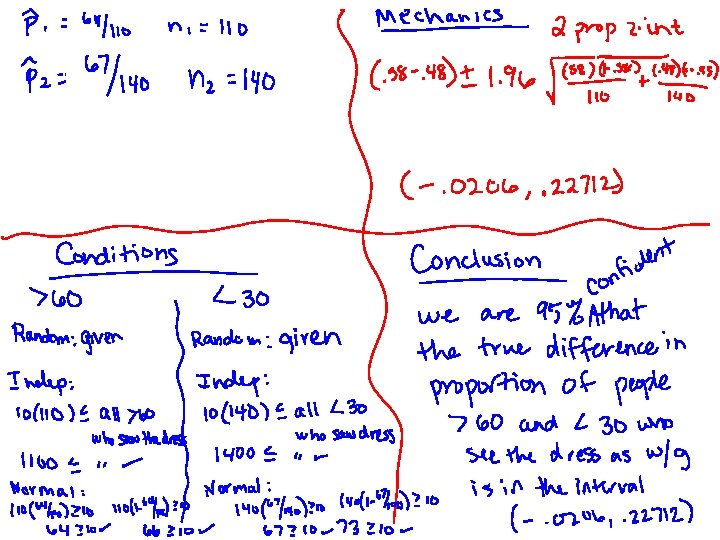 p̂₁ = 64/110 n₁ = 110
p̂₂ = 67/140 n₂ = 140
Mechanics 2 prop z-int
(.58-.48) ± 1.96 √((.58)(1-.58)/110 + (.48)(1-.48)/140)
(-.0206, .22712)
Conditions
>60 <30
Random: given
Indep:
10(110) ≤ all >60
who saw the dress
1100 ≤ " ✓
Normal:
110(64/110) ≥ 10 110(1-64/110) ≥ 10
64 ≥ 10 ✓ 66 ≥ 10 ✓
Random: given
Indep:
10(140) ≤ all <30
who saw dress
1400 ≤ " ✓
Normal:
140(67/140) ≥ 10 140(1-67/140) ≥ 10
67 ≥ 10 ✓ 73 ≥ 10 ✓
Conclusion
we are 95% confident that
the true difference in
proportion of people
>60 and <30 who
see the dress as w/g
is in the interval
(-.0206, .22712)